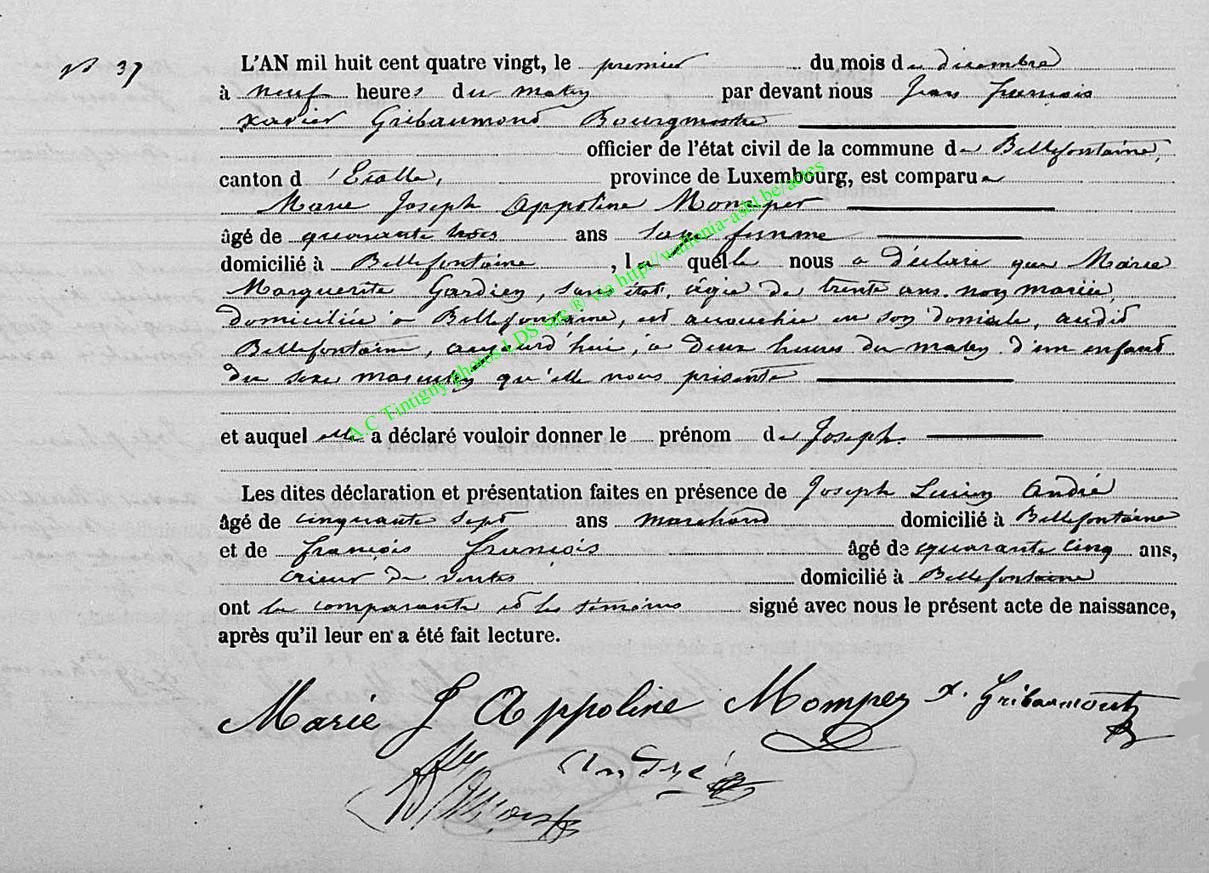 N° 37
L'AN mil huit cent quatre vingt, le premier du mois de décembre
à neuf heures du matin par devant nous Jean François
Xavier Gribaumont Bourgmestre
officier de l'état civil de la commune de Bellefontaine,
canton d'Etalle, province de Luxembourg, est comparue
Marie Joseph Appoline Momper
âgé de quarante trois ans sage femme
domicilié à Bellefontaine, laquelle nous a déclaré que Marie
Marguerite Gardien, sans état, âgée de trente ans, non mariée,
domiciliée à Bellefontaine, est accouchée en son domicile, audit
Bellefontaine, aujourd'hui, à deux heures du matin d'un enfant
du sexe masculin qu'elle nous présente
et auquel elle a déclaré vouloir donner le prénom de Joseph.
Les dites déclaration et présentation faites en présence de Joseph Lucien André
âgé de cinquante sept ans marchand domicilié à Bellefontaine
et de François François âgé de quarante cinq ans,
crieur de ventes domicilié à Bellefontaine
ont la comparante et les témoins signé avec nous le présent acte de naissance,
après qu'il leur en a été fait lecture.
Marie J Appoline Momper X. Gribaumont
André
A C Tintigny photos LDS sàs ® via http://wallonia-asbl.be/actes